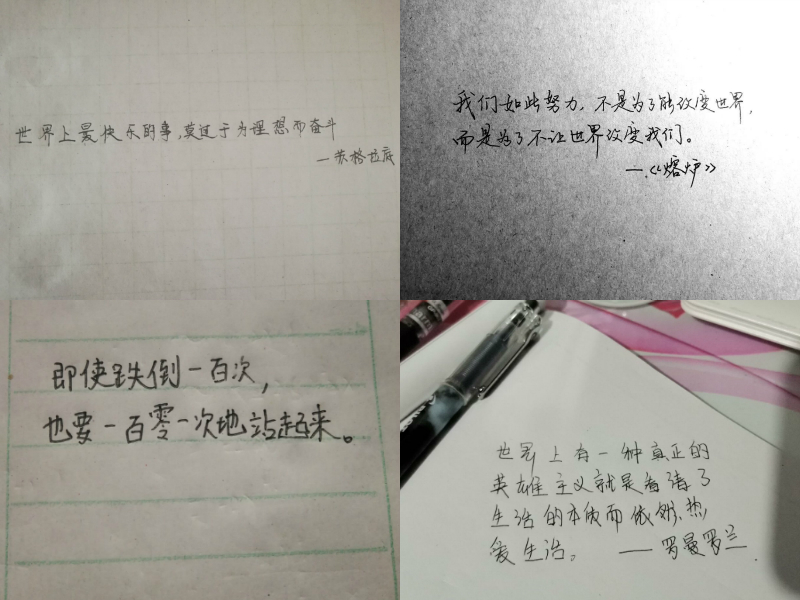 世界上最快乐的事,莫过于为理想而奋斗
—苏格拉底
我们如此努力,不是为了能改变世界,
而是为了不让世界改变我们。
—《熔炉》
即使跌倒一百次,
也要一百零一次地站起来。
世界上有一种真正的
英雄主义就是看清了
生活的本质而依然热
爱生活。 ——罗曼罗兰.